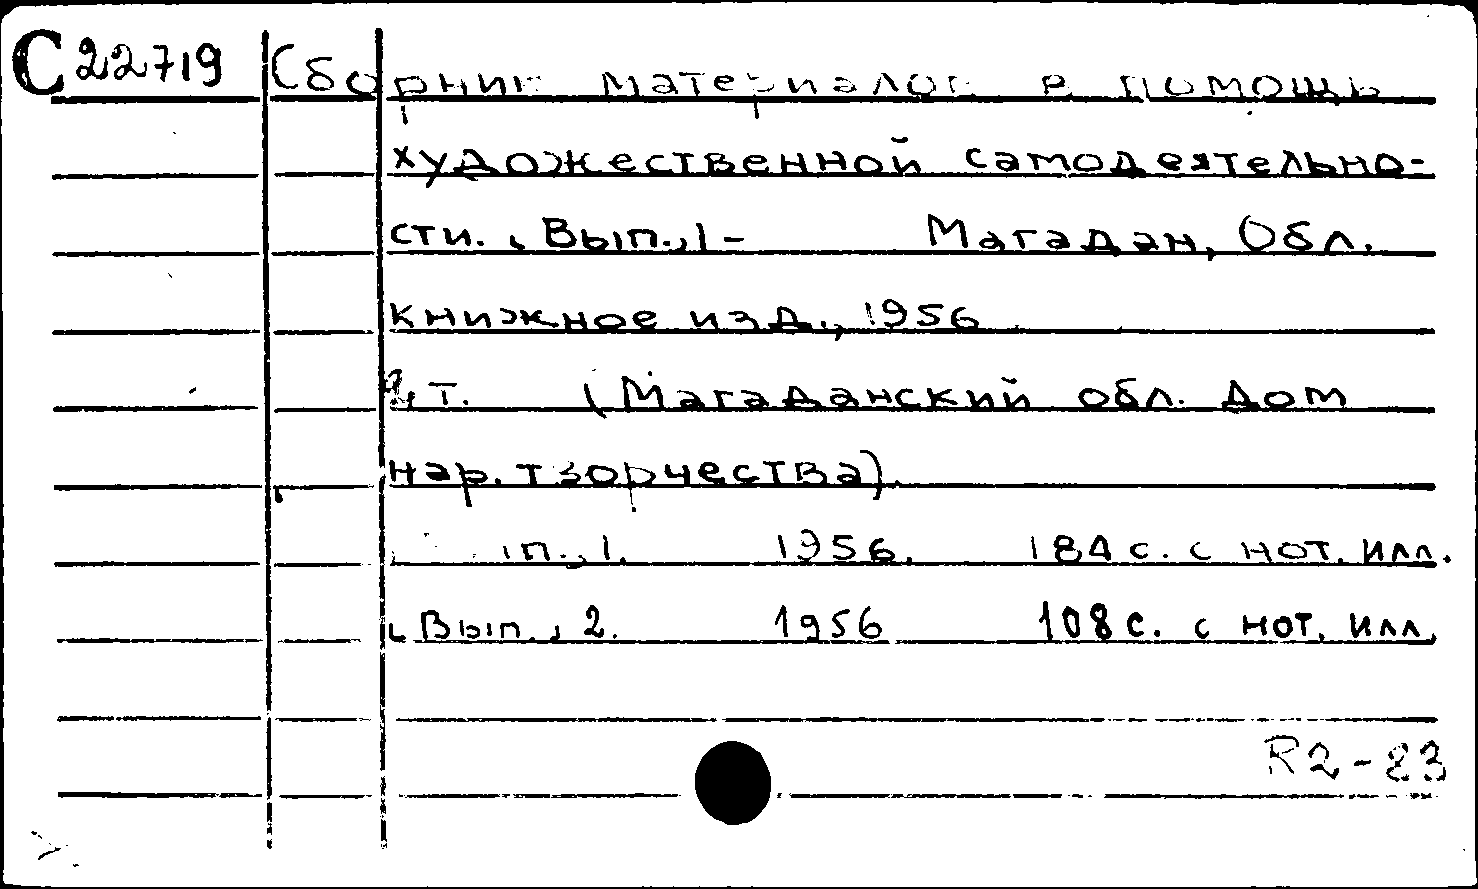 С22719 Сборник материалов в помощь
художественной самодеятельно-
сти. [Вып.] 1- Магадан, Обл.
книжное изд., 1956
т. (Магаданский обл. Дом
нар. творчества).
1. 1956. 184 с. с нот. илл.
[Вып.] 2. 1956 108 с. с нот. илл.
R2-23